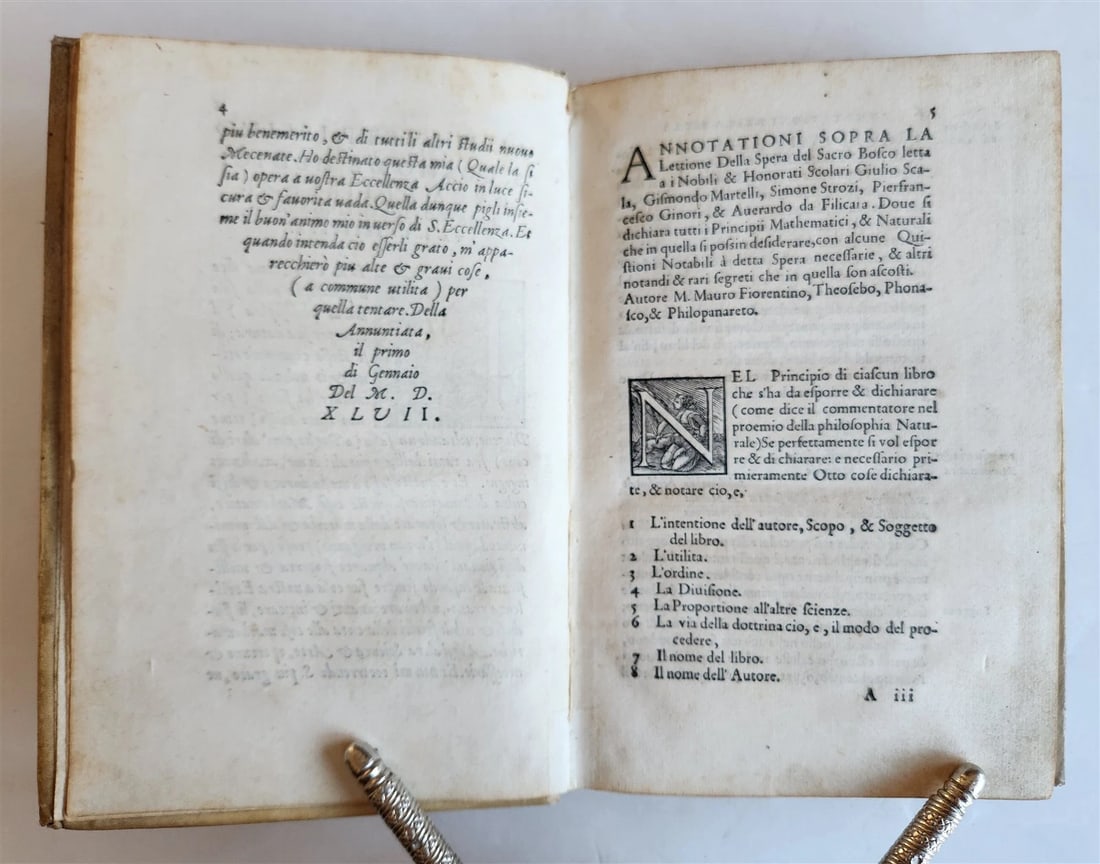 4
piu benemerito, & di tutti li altri ſtudii nuouo
Mecenate. Ho deſtinato queſta mia ( Quale la ſi
ſia ) opera a uoſtra Eccellenza Accio in luce ſi-
cura & fauorita uada. Quella dunque pigli inſie-
me il buon'animo mio in uerſo di S. Eccellenza. Et
quando intenda cio eſſerli grato, m'appa-
recchierò piu alte & graui coſe,
( a commune utilita ) per
quella tentare. Della
Annuntiata,
il primo
di Gennaio
Del M. D.
X L U I I.
5
ANNOTATIONI SOPRA LA
Lettione Della Spera del Sacro Boſco letta
a i Nobili & Honorati Scolari Giulio Sca-
la, Giſmondo Martelli, Simone Strozi, Pierfran-
ceſco Ginori, & Auerardo da Filicaia. Doue ſi
dichiara tutti i Principii Mathematici, & Naturali
che in quella ſi poſſin deſiderare, con alcune Qui-
ſtioni Notabili à detta Spera neceſſarie, & altri
notandi & rari ſegreti che in quella ſon aſcoſti.
Autore M. Mauro Fiorentino, Theoſebo, Phona-
ſco, & Philopanareto.
NEL Principio di ciaſcun libro
che s'ha da eſporre & dichiarare
( come dice il commentatore nel
proemio della philoſophia Natu-
rale) Se perfettamente ſi vol eſpor
re & di chiarare: e neceſſario pri-
mieramente Otto coſe dichiara-
te, & notare cio, e,
1 L'intentione dell'autore, Scopo, & Soggetto
del libro.
2 L'utilita.
3 L'ordine.
4 La Diuiſione.
5 La Proportione all'altre ſcienze.
6 La via della dottrina cio, e, il modo del pro-
cedere,
7 Il nome del libro.
8 Il nome dell'Autore.
A iii